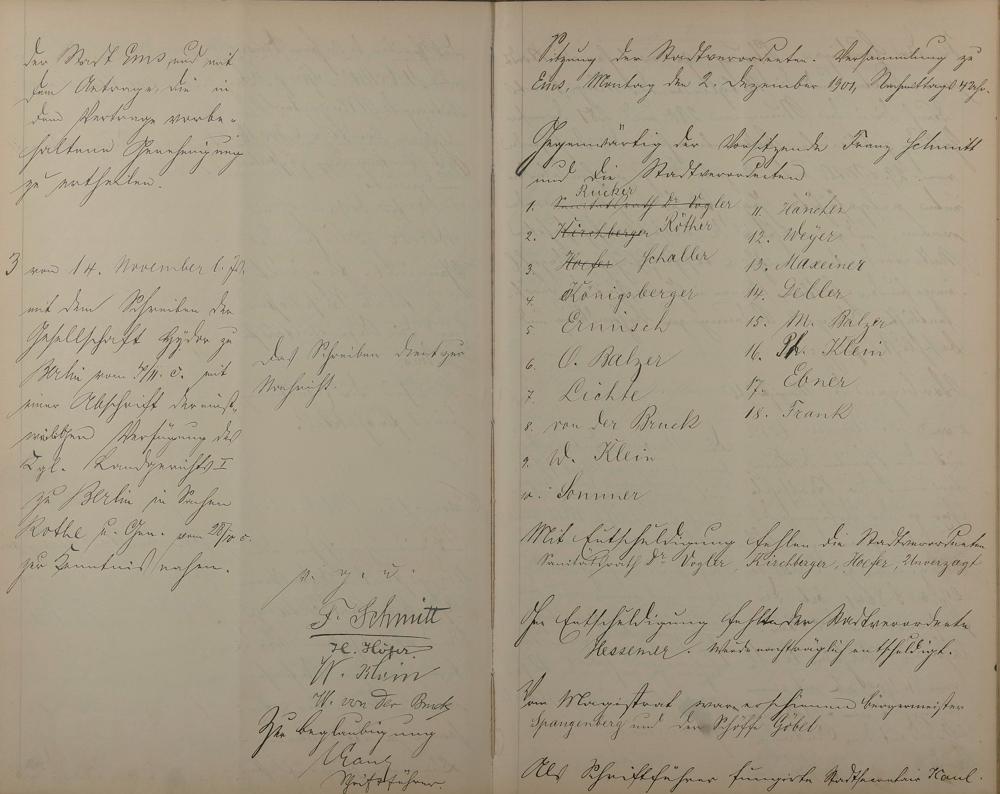 der Stadt Ems und mit
dem Antrage, die in
dem Vertrage vorbe-
haltene Genehmigung
zu ertheilen.
3 vom 14. November l. Js.
mit dem Schreiben der
Gesellschaft Hydor zu
Berlin vom 7/11. c. mit
einer Abschrift der einst-
weiligen Verfügung des
Kgl. Landgerichts I
zu Berlin in Sachen
Rothe u. Gen. vom 28/10 c.
zur Kenntnis nahen.
Das Schreiben dient zur
Nachricht.
v. g. u.
F. Schmitt
H. Höfer
W. Klein
W. von der Bruck
Zur Beglaubigung
Schriftführer.
Sitzung der Stadtverordneten-Versammlung zu
Ems, Montag den 2. Dezember 1901, Nachmittags 4 Uhr.
Gegenwärtig der Vorsitzende Franz Schmitt
und die Stadtverordneten
Rücker
1. Sanitätsrath Dr Vogler
2. Kirchberger Röther
3. Hoefer Schaller
4. Königsberger
5 Ermisch
6. O. Balzer
7. Lichte
8. von der Bruck
9. W. Klein
10. Sommer
11. Häncher
12. Weyer
13. Maxeiner
14. Gebler
15. M. Balzer
16. Ph. Klein
17. Ebner
18. Frank
Mit Entschuldigung fehlen die Stadtverordneten
Sanitätsrath Dr Vogler, Kirchberger, Hoefer, Unverzagt
Ohne Entschuldigung fehlte der Stadtverordnete
Hessemer. Wurde nachträglich entschuldigt.
Vom Magistrat waren erschienen Bürgermeister
Spangenberg und der Schöffe Göbel
Als Schriftführer fungirte Stadtsecretair Kaul.